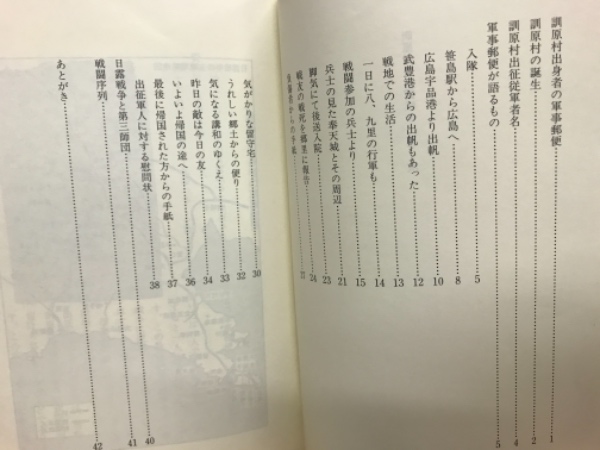 訓原村出身者の軍事郵便……1
訓原村の誕生……2
訓原村出征従軍者名……4
軍事郵便が語るもの……5
入隊……5
笹島駅から広島へ……8
広島宇品港より出帆……10
武豊港からの出帆もあった……12
戦地での生活……13
一日に八、九里の行軍も……14
戦闘参加の兵士より……15
兵士の見た奉天城とその周辺……21
脚気にて後送入院……23
戦友の戦死を郷里に報告……24
からの手紙……27
気がかりな留守宅……30
うれしい郷土からの便り……32
気になる講和のゆくえ……33
昨日の敵は今日の友……34
いよいよ帰国の途へ……36
最後に帰国された方からの手紙……37
出征軍人に対する慰問状……38
日露戦争と第三師団……40
戦闘序列……41
あとがき……42